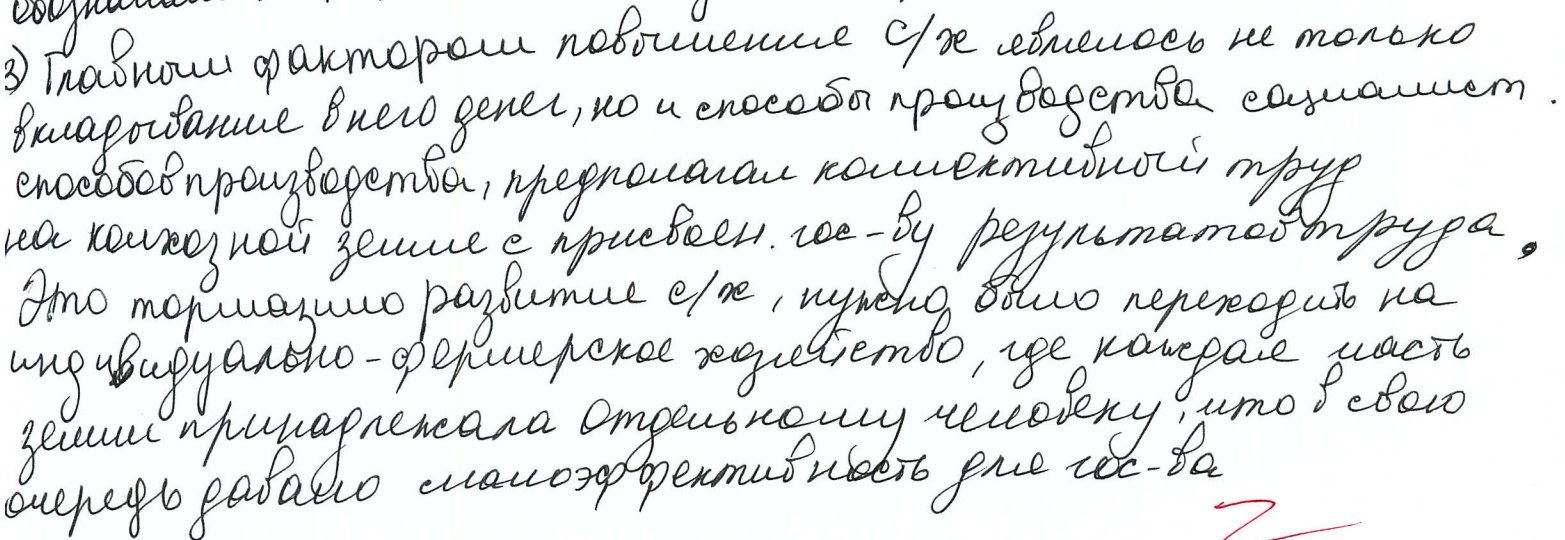 3) Главным фактором повышения с/х являлось не только
вкладывание в него денег, но и способы производства социалист.
способов производства, предполагал коллективный труд
на колхозной земле с присвоен. гос-ву результатов труда.
Это тормазило развитие с/х, нужно было переходить на
индивидуально-фермерское хозяйство, где каждая часть
земли принадлежала отдельному человеку, что в свою
очередь давало малоэффективность для гос-ва